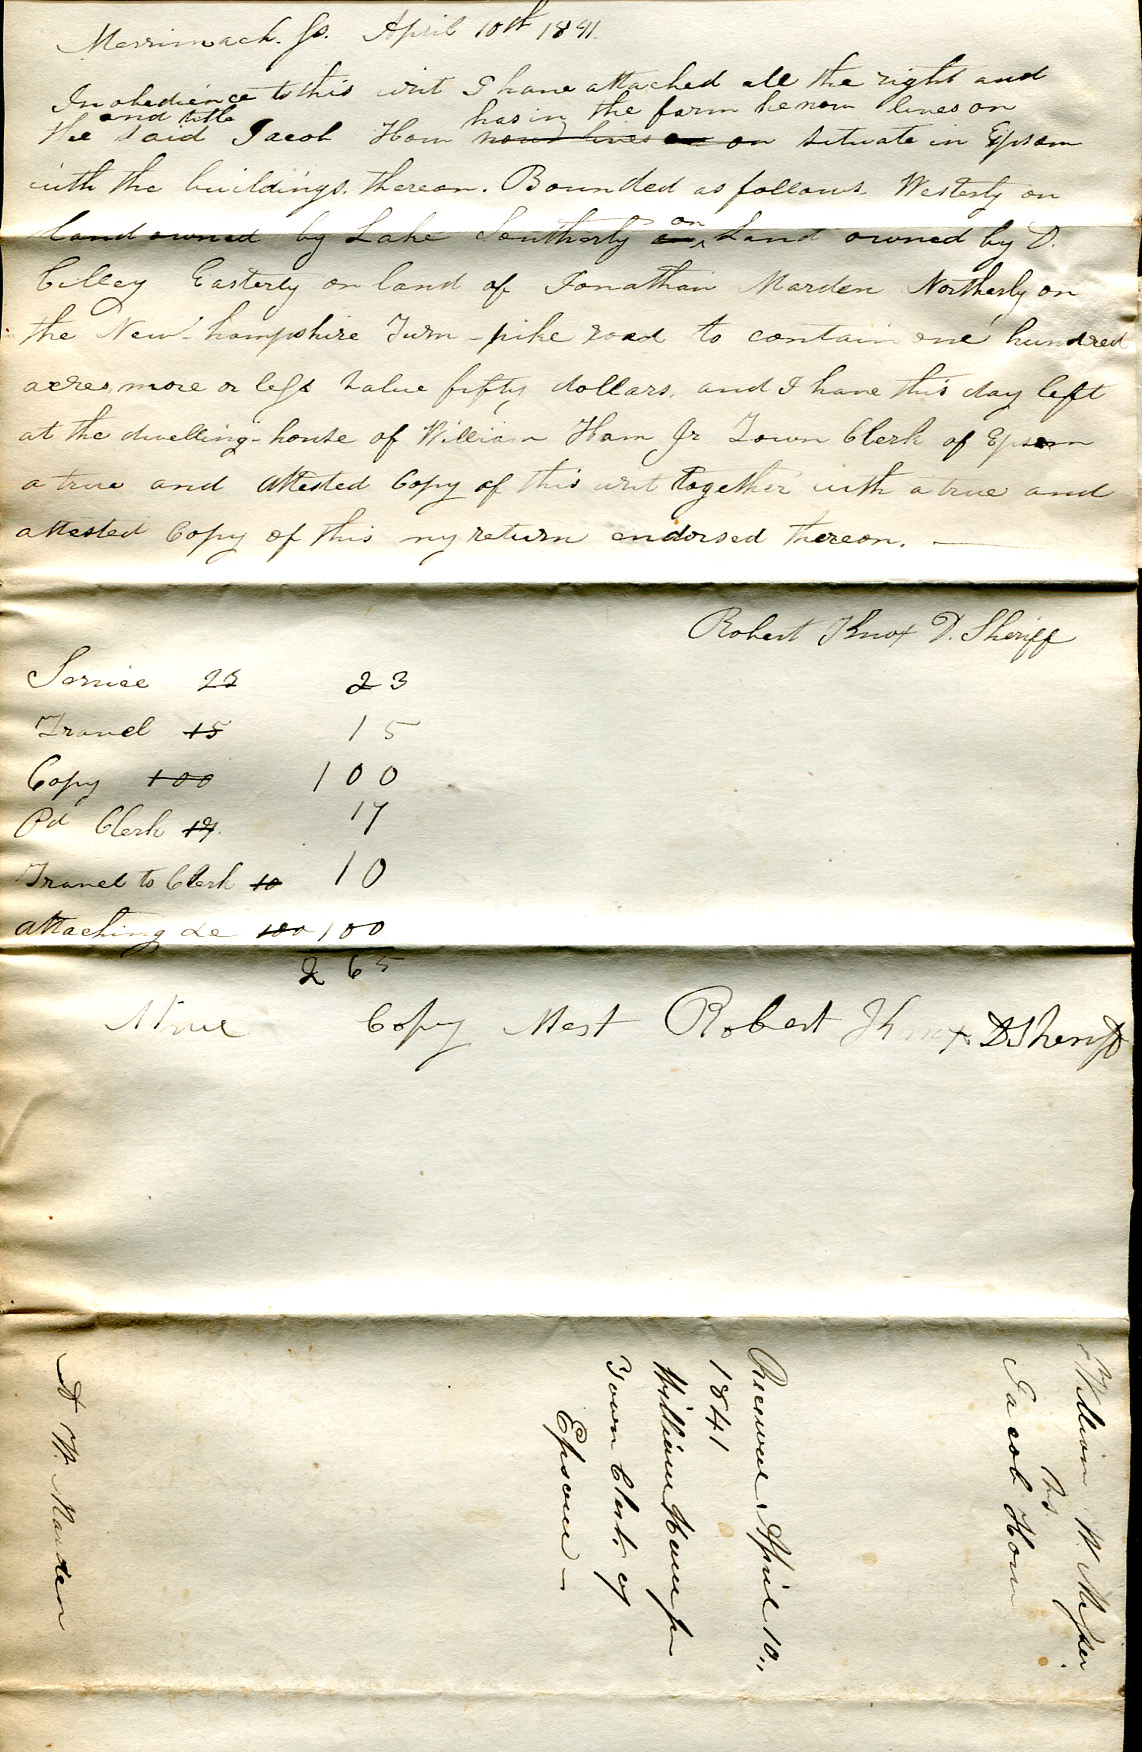 Merrimack. Ss. April 10th 1841.
In obedience to this writ I have attached all the right and
and title has in the farm he now lives on
the said Jacob How now lives on on situate in Epsom
with the buildings thereon. Bounded as follows. Westerly on
land owned by Lake Southerly on on Land owned by D.
Cilley Easterly on land of Jonathan Marden Northerly on
the New-hampshire Turn-pike road to contain one hundred
acres more or less value fifty dollars, and I have this day left
at the dwelling-house of William Ham Jr Town Clerk of Epsom
a true and attested Copy of this writ together with a true and
attested Copy of this my return endorsed thereon. —
Robert Knox D. Sheriff
Service 23 23
Travel 15 15
Copy 100 100
Pd Clerk 17 17
Travel to Clerk 10 10
attaching &c 100 100
2 65
A true Copy Attest Robert Knox D Sheriff
William W. Messer
vs.
Jacob How
Received April 10,,
1841
William Ham Jr
Town Clerk of
Epsom —
A W. Marden